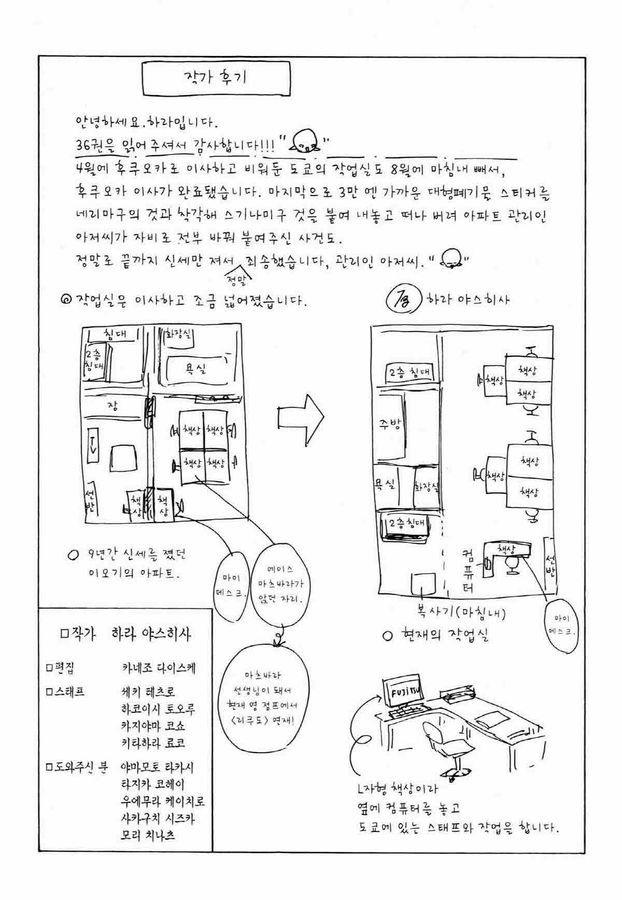 작가 후기
안녕하세요. 하라입니다.
36권을 읽어 주셔서 감사합니다!!!
4월에 후쿠오카로 이사하고 비워둔 도쿄의 작업실도 8월에 마침내 빼서,
후쿠오카 이사가 완료됐습니다. 마지막으로 3만 엔 가까운 대형폐기물 스티커를
네리마구의 것과 착각해 스기나미구 것을 붙여 내놓고 떠나 버려 아파트 관리인
아저씨가 자비로 전부 바꿔 붙여주신 사건도.
정말로 끝까지 신세만 져서 죄송했습니다, 관리인 아저씨.
정말
◎ 작업실은 이사하고 조금 넓어졌습니다.
하라 야스히사
침대
2층 침대
화장실
욕실
장
책상
책상
책상
책상
선반
책상
책상
○ 9년간 신세를 졌던
이오기의 아파트.
마이
데스크.
에이스
마츠바라가
앉던 자리.
마츠바라
선생님이 돼서
현재 영 점프에서
<리쿠도> 연재!
2층 침대
주방
욕실
화장실
2층침대
책상
책상
책상
책상
책상
책상
컴퓨터
책상
선반
복사기(마침내)
마이
데스크.
○ 현재의 작업실
FUJITSU
L자형 책상이라
옆에 컴퓨터를 놓고
도쿄에 있는 스태프와 작업을 합니다.
□작가 하라 야스히사
□편집 카네조 다이스케
□스태프 세키 테츠로
하코이시 토오루
카지야마 코쇼
키타하라 료코
□도와주신 분 야마모토 타카시
타지카 코헤이
우에무라 케이치로
사카구치 시즈카
모리 치나츠